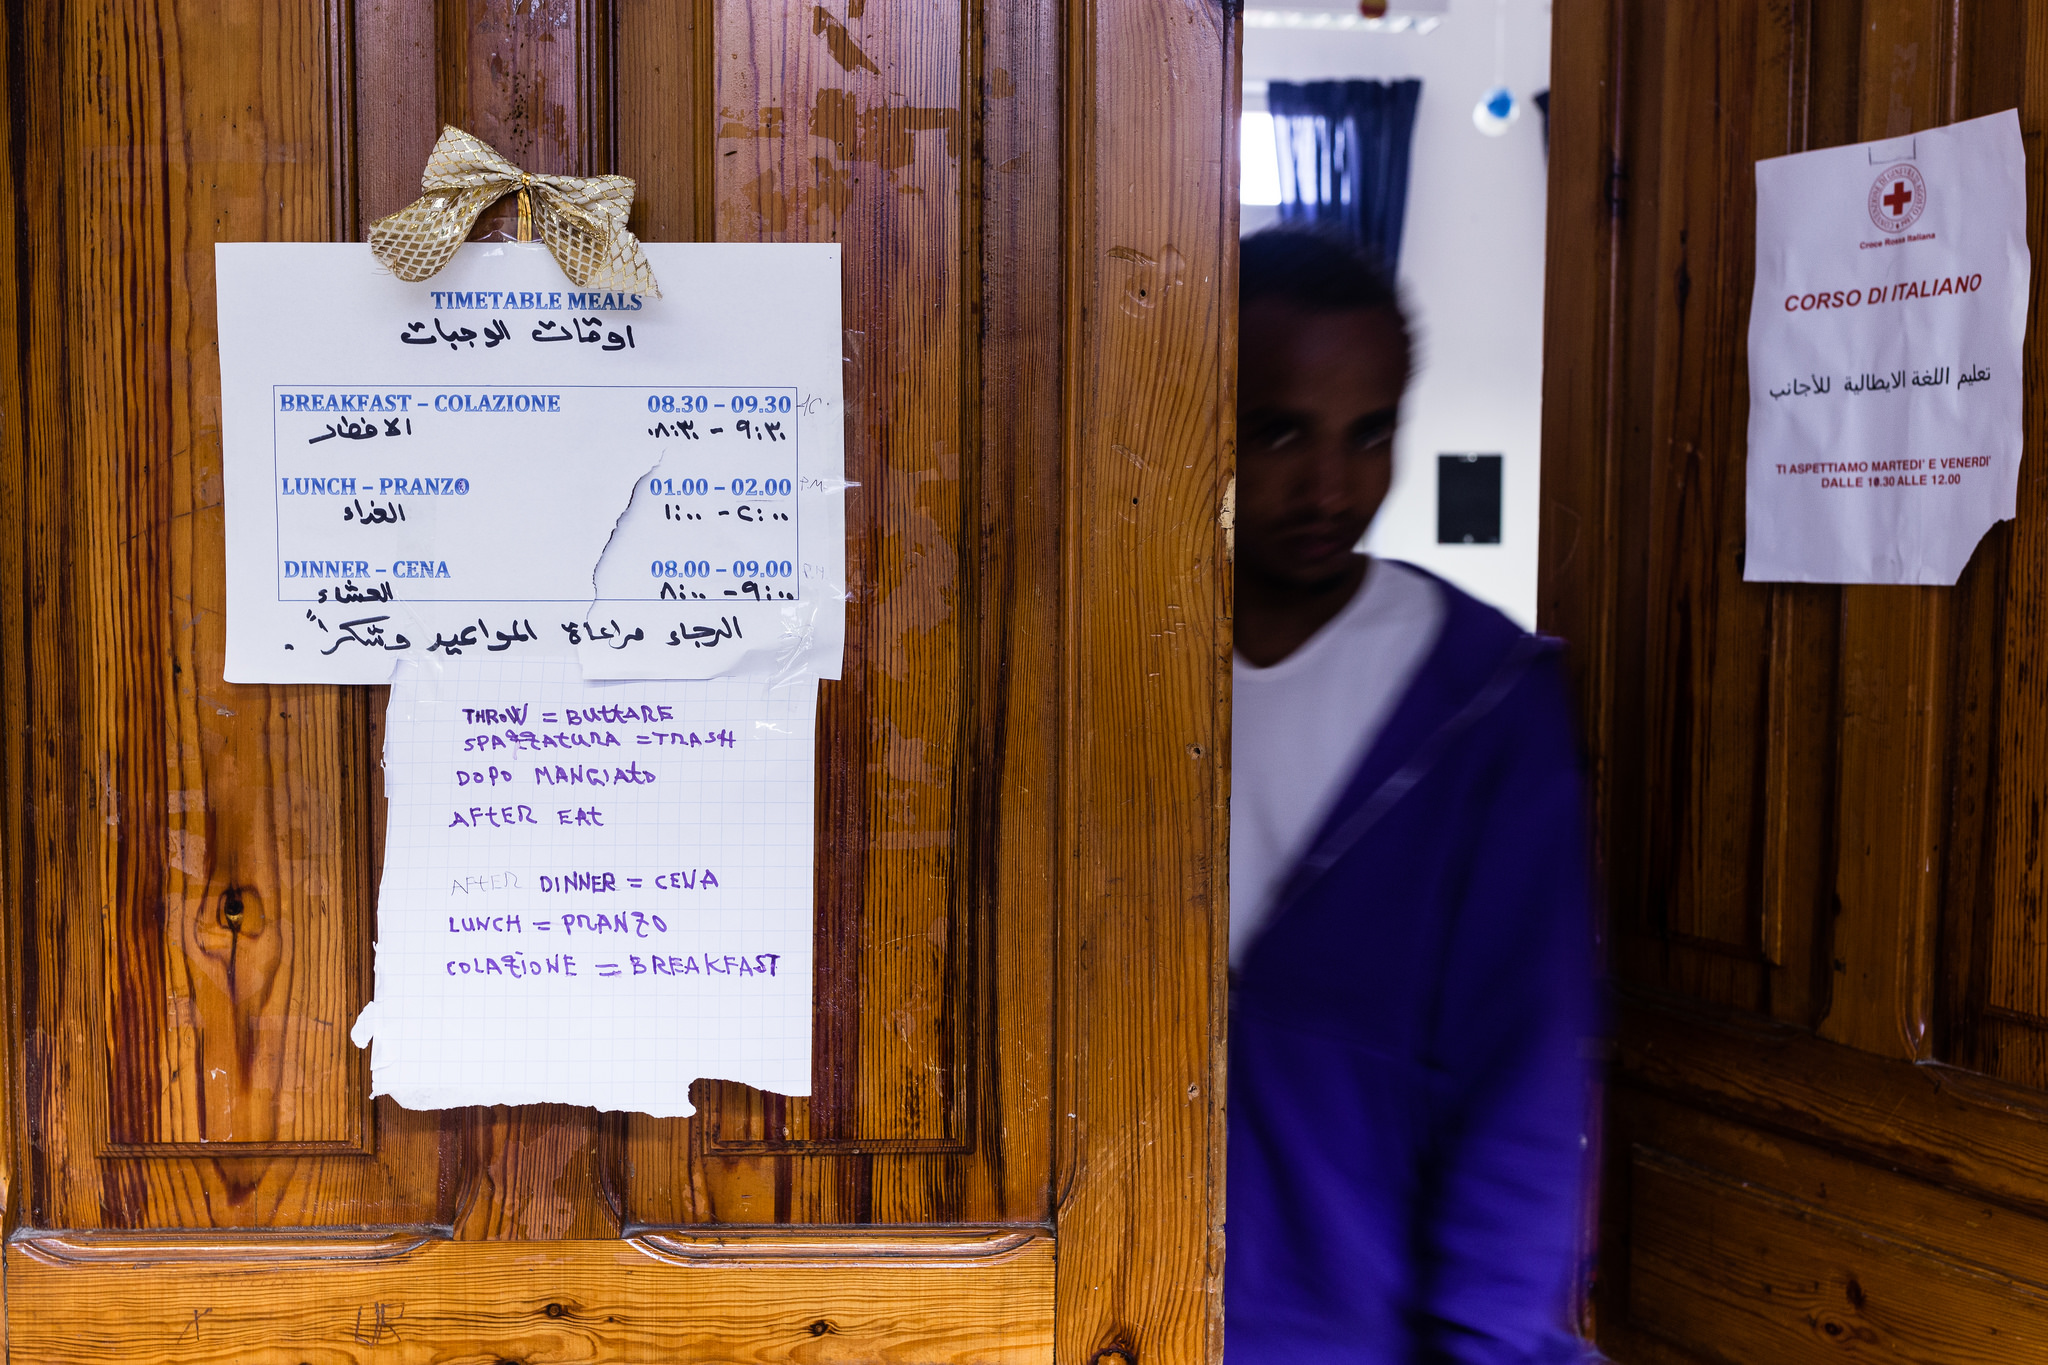 TIMETABLE MEALS
اوقات الوجبات
BREAKFAST – COLAZIONE 08.30 – 09.30
الافطار ٠٨:٣٠ - ٩:٣٠
LUNCH – PRANZO 01.00 – 02.00 P.M
الغداء ١:٠٠ - ٢:٠٠
DINNER – CENA 08.00 – 09.00 P.M
العشاء ٨:٠٠ - ٩:٠٠
الرجاء مراعاة المواعيد وشكراً.
THROW = BUTTARE
SPAZZATURA = TRASH
DOPO MANGIATO
AFTER EAT
AFTER DINNER = CENA
LUNCH = PRANZO
COLAZIONE = BREAKFAST
Croce Rossa Italiana
CORSO DI ITALIANO
تعليم اللغة الايطالية للأجانب
TI ASPETTIAMO MARTEDI' E VENERDI'
DALLE 10.30 ALLE 12.00